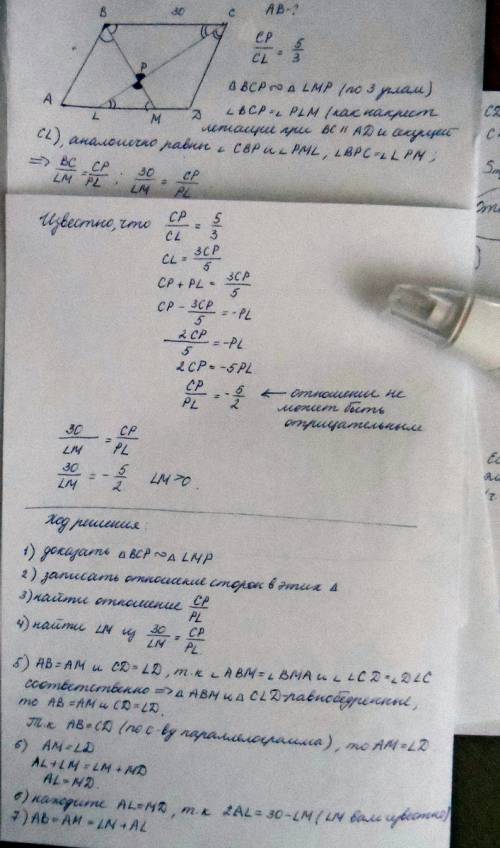 B 30 C
AB-?
CP/CL = 5/3
P
A L M D
△BCP ∾ △LMP (по 3 углам)
∠BCP = ∠PLM (как накрест
лежащие при BC || AD и секущей
CL), аналогично равны ∠CBP и ∠PML, ∠BPC = ∠LPM;
=> BC/LM = CP/PL ; 30/LM = CP/PL
Известно, что CP/CL = 5/3
CL = 3CP/5
CP + PL = 3CP/5
CP - 3CP/5 = -PL
2CP/5 = -PL
2CP = -5PL
CP/PL = -5/2 ← отношение не
может быть
отрицательным
30/LM = CP/PL
30/LM = -5/2 LM>0.
Ход решения:
1) доказать △BCP ∾ △LMP
2) записать отношение сторон в этих △
3) найти отношение CP/PL
4) найти LM из 30/LM = CP/PL
5) AB=AM и CD=LD, т.к ∠ABM=∠BMA и ∠LCD=∠DLC
соответственно => △ABM и △CLD-равнобедренные,
то AB=AM и CD=LD.
Т.к AB=CD (по св-ву параллелограмма), то AM=LD
6) AM=LD
AL+LM=LM+MD
AL=MD.
6) находите AL=MD, т.к 2AL=30-LM (LM вам известно)
7) AB=AM=LM+AL